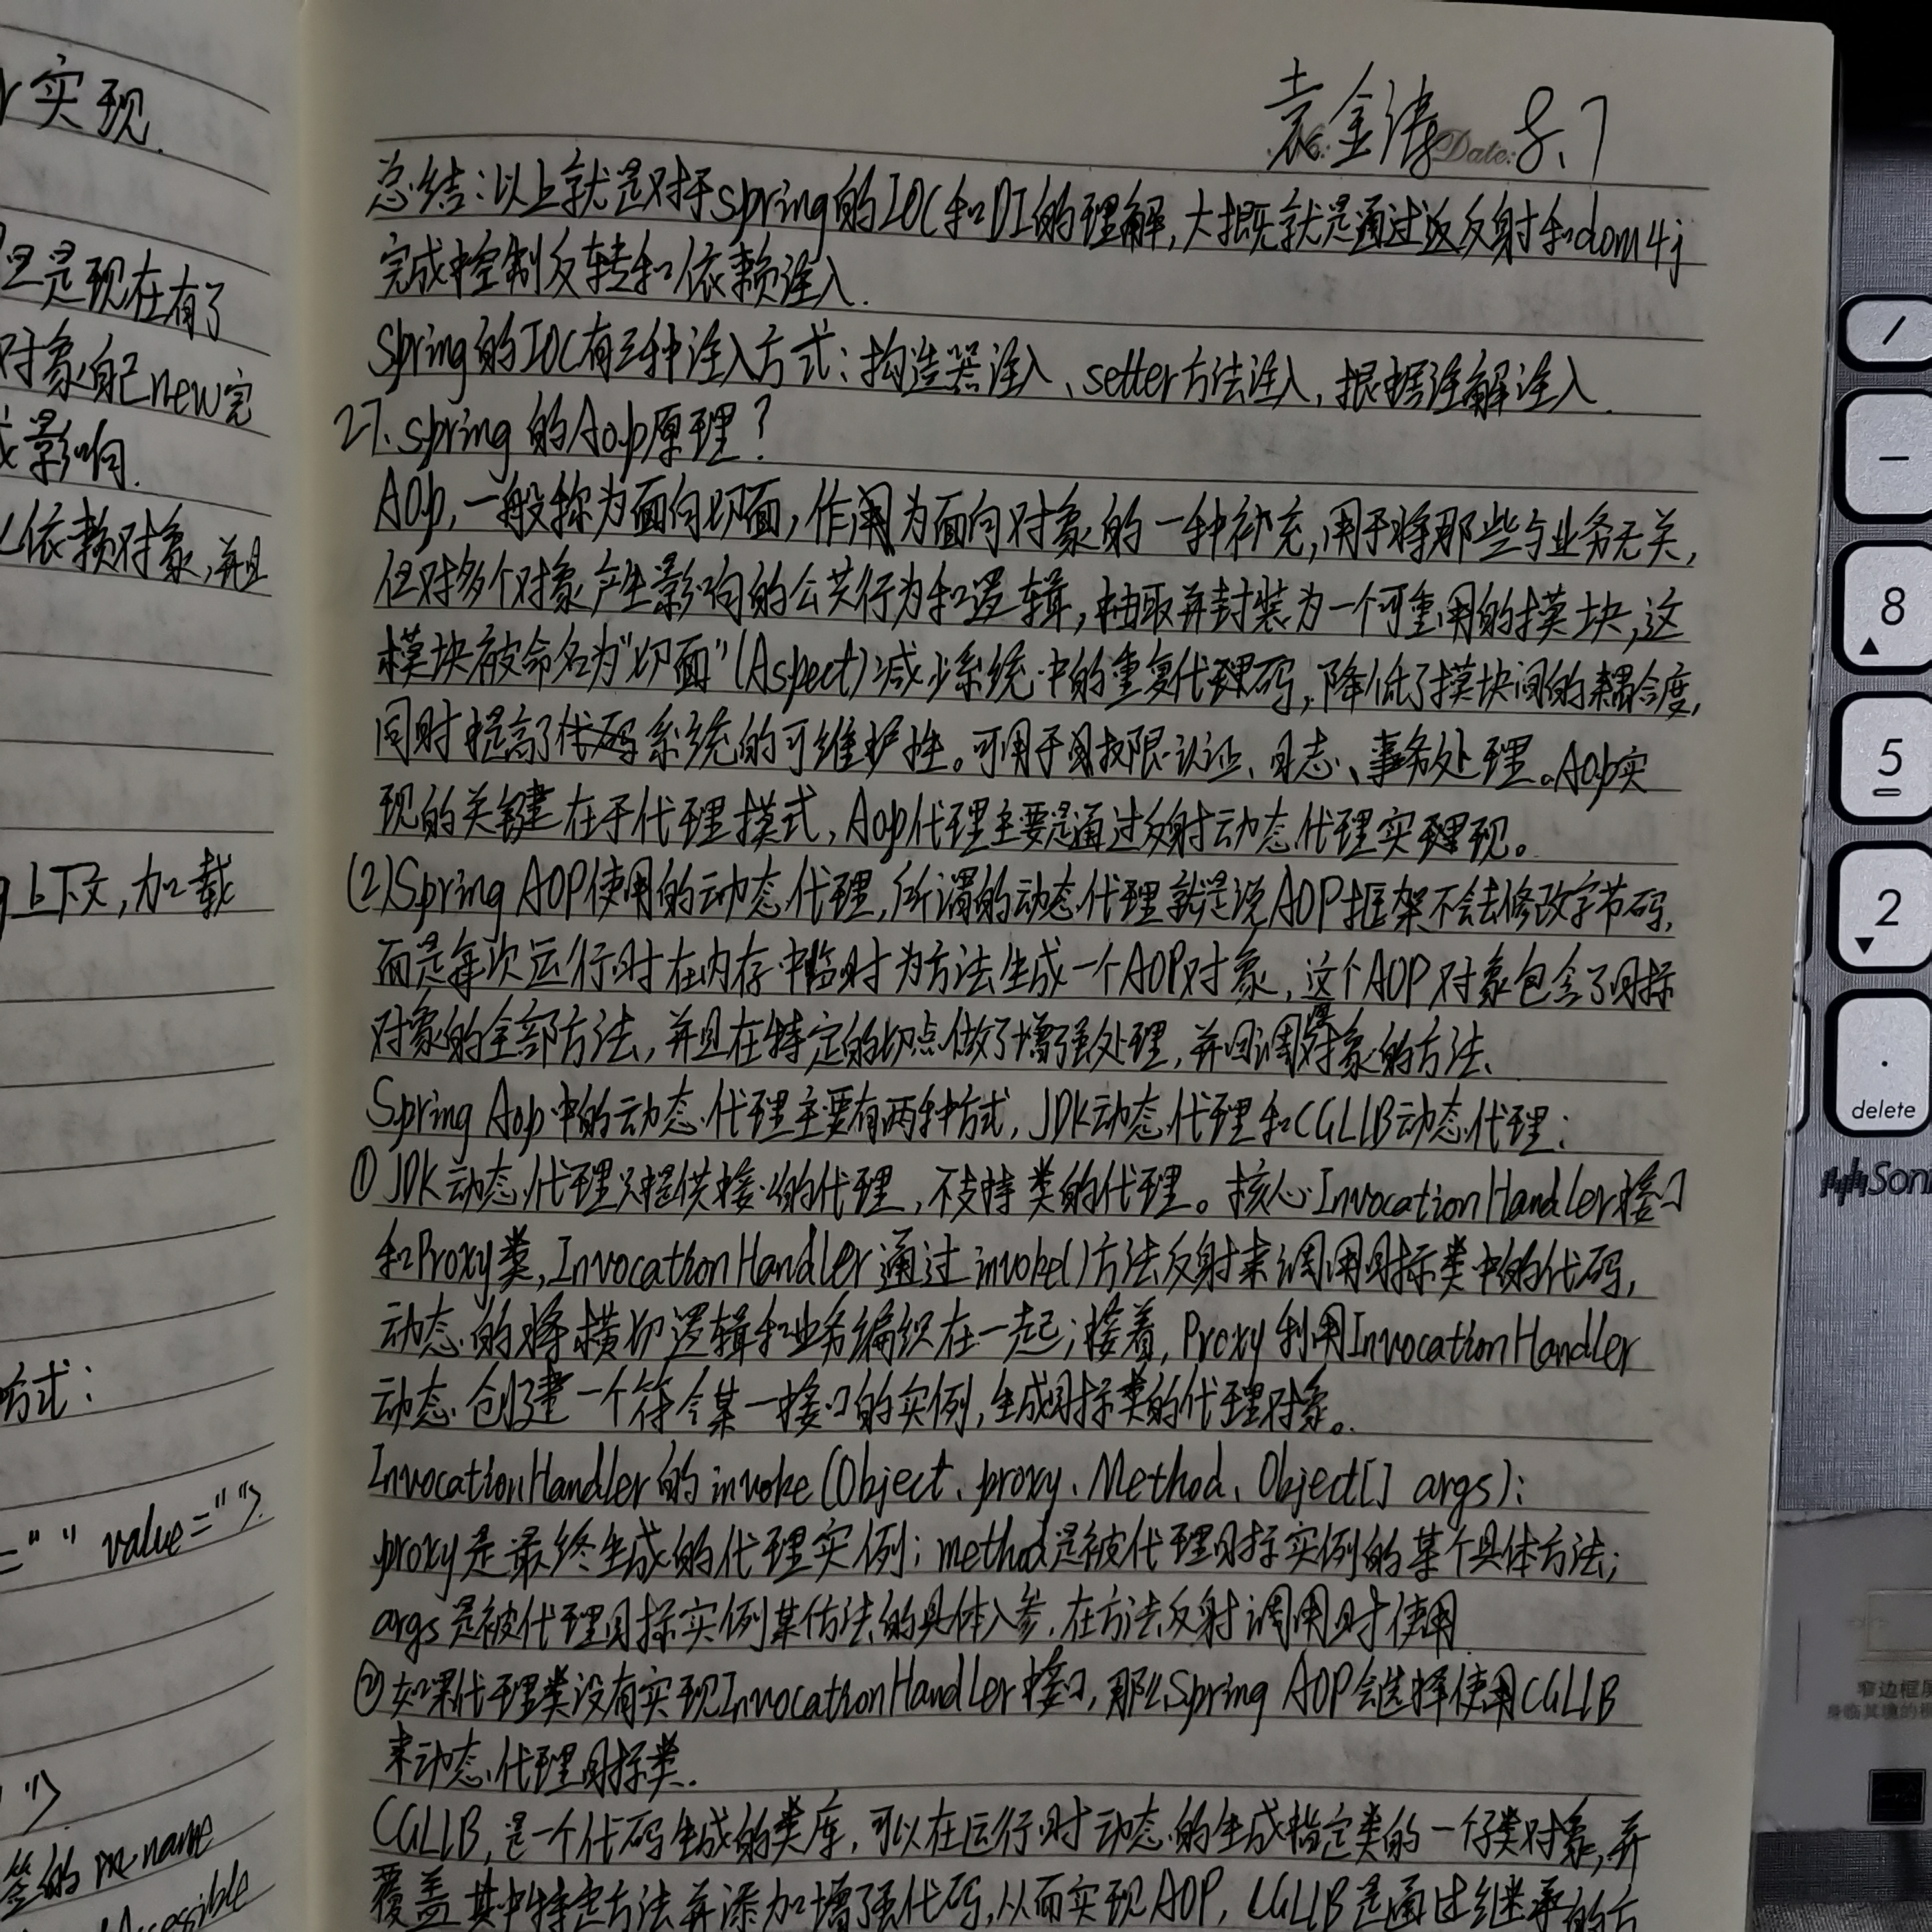 实现.
但是现在有了
对象自己new完
影响.
依赖对象,并且
上下文,加载
方式:
=" " value=" ">
">
签的 name
袁金涛 Date: 8.7
总结:以上就是对于spring的IOC和DI的理解,大概就是通过反射和dom4j
完成控制反转和依赖注入.
Spring的IOC有三种注入方式:构造器注入、setter方法注入,根据注解注入.
27.spring的Aop原理?
AOP,一般称为面向切面,作为面向对象的一种补充,用于将那些与业务无关,
但对多个对象产生影响的公共行为和逻辑,抽取并封装为一个可重用的模块,这
模块被命名为"切面"(Aspect)减少系统中的重复代码,降低了模块间的耦合度,
同时提高了系统的可维护性。可用于权限认证、日志、事务处理。Aop实
现的关键在于代理模式,Aop代理主要是通过反射动态代理实现。
(2)Spring AOP使用的动态代理,所谓的动态代理就是说AOP框架不会去修改字节码,
而是每次运行时在内存中临时为方法生成一个AOP对象,这个AOP对象包含了目标
对象的全部方法,并且在特定的切点做了增强处理,并回调原对象的方法、
Spring Aop中的动态代理主要有两种方式,JDK动态代理和CGLLB动态代理:
①JDK动态代理只提供接口的代理,不支持类的代理。核心InvocationHandler接口
和Proxy类,InvocationHandler通过invoke()方法反射来调用目标类中的代码,
动态的将横切逻辑和业务编织在一起;接着,Proxy利用InvocationHandler
动态创建一个符合某一接口的实例,生成目标类的代理对象。
InvocationHandler的invoke(Object、proxy、Method、Object[] args):
proxy是最终生成的代理实例;method是被代理目标实例的某个具体方法;
args是被代理目标实例某个方法的具体入参.在方法反射调用时使用.
②如果代理类没有实现InvocationHandler接口,那么Spring AOP会选择使用CGLLB
来动态代理目标类.
CGLLB,是一个代码生成的类库,可以在运行时动态的生成指定类的一个子类对象,并
覆盖其中特定方法并添加增强代码,从而实现AOP,CGLLB是通过继承的方
/
-
8
5
2
.
delete
Soni
窄边框